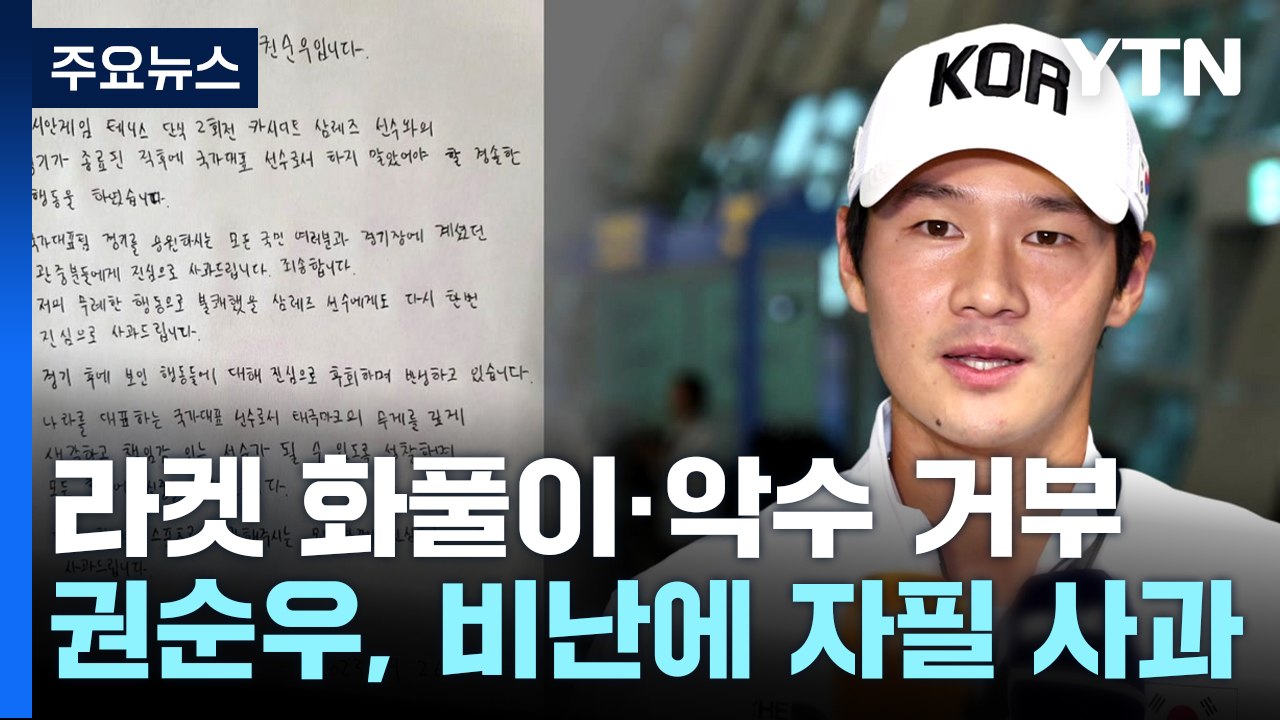 주요뉴스
YTN
KOR
권순우입니다.
시안게임 테니스 단식 2회전 카시디트 삼레즈 선수와의
경기가 종료된 직후에 국가대표 선수로서 하지 말았어야 할 경솔한
행동을 하였습니다.
국가대표팀 경기를 응원하시는 모든 국민 여러분과 경기장에 계셨던
관중분들에게 진심으로 사과드립니다. 죄송합니다.
저의 무례한 행동으로 불쾌했을 삼레즈 선수에게도 다시 한번
진심으로 사과드립니다.
경기 후에 보인 행동들에 대해 진심으로 후회하며 반성하고 있습니다.
나라를 대표하는 국가대표 선수로서 태극마크의 무게를 깊게
생각하고 책임감 있는 선수가 될 수 있도록 성찰하며
모든
사과드립니다.
라켓 화풀이·악수 거부
권순우, 비난에 자필 사과